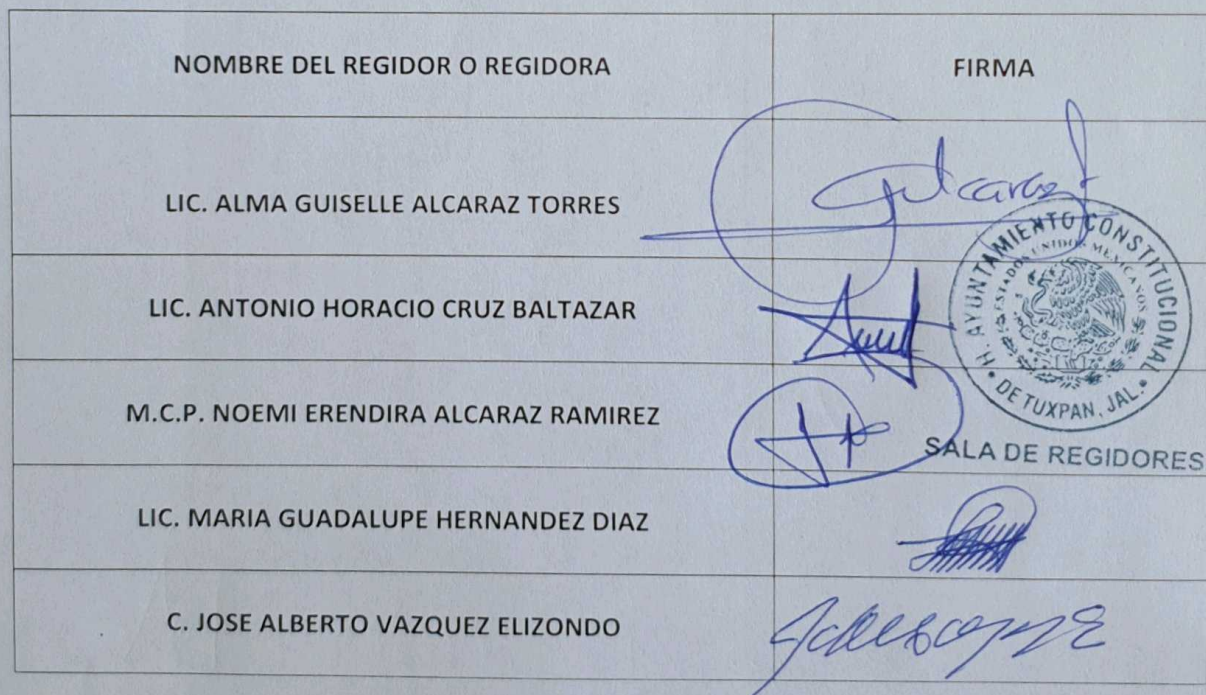 NOMBRE DEL REGIDOR O REGIDORA
FIRMA
LIC. ALMA GUISELLE ALCARAZ TORRES
LIC. ANTONIO HORACIO CRUZ BALTAZAR
M.C.P. NOEMI ERENDIRA ALCARAZ RAMIREZ
LIC. MARIA GUADALUPE HERNANDEZ DIAZ
C. JOSE ALBERTO VAZQUEZ ELIZONDO
H. AYUNTAMIENTO CONSTITUCIONAL
ESTADOS UNIDOS MEXICANOS
DE TUXPAN, JAL.
SALA DE REGIDORES